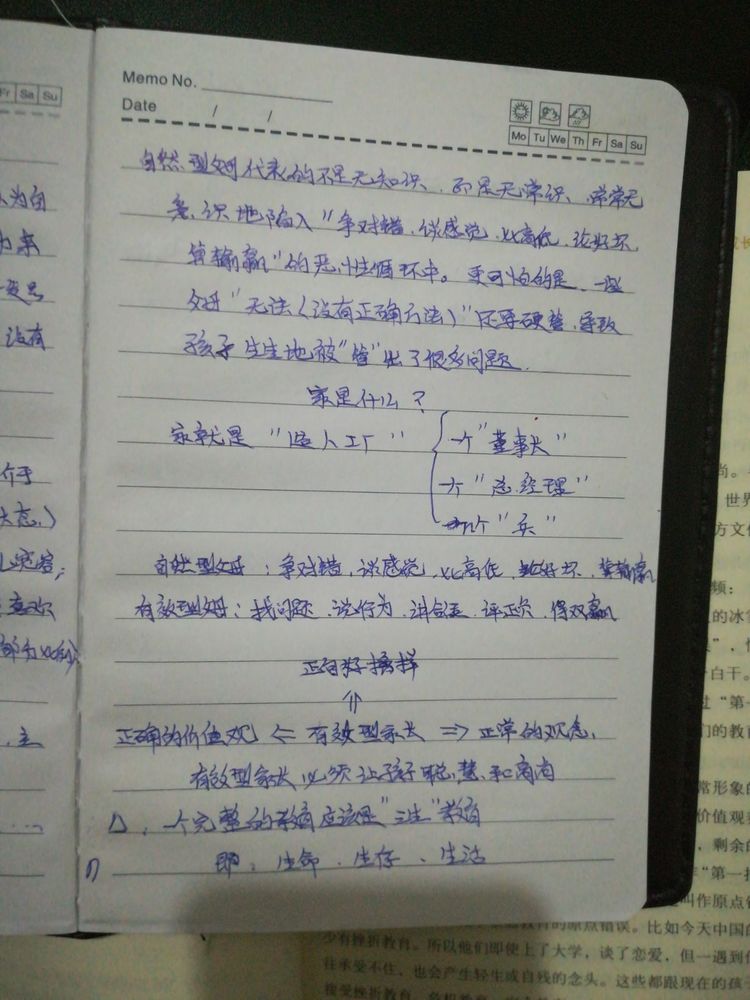 Fr Sa Su
Memo No.
Date / /
Mo Tu We Th Fr Sa Su
自然型父母代表的不是无知识、而是无常识、常常无
意识地陷入"争对错、谈感觉、比高低、论好坏、
算输赢"的恶性循环中。更可怕的是、一些
父母"无法(没有正确方法)"还要硬管、导致
孩子生生地被"管"出了很多问题.
家是什么?
家就是"造人工厂"
一个"董事长"
一个"总经理"
一个"兵"
自然型父母:争对错、谈感觉、比高低、论好坏、算输赢
有效型父母:找问题、说行为、讲自己、评正负、得双赢
正确好榜样
⇑
正确的价值观 ⇐ 有效型家长 ⇒ 正常的观念.
有效型家长必须让孩子聪慧和高尚
△、一个完整的教育应该是"三生"教育
即:生命、生存、生活
为自
来
没有
介于
态)
尚。
世界
方文
频:
的冰
一白干。
过"第一
们的教育
常形象的
价值观
,剩余的
"第一
叫作原点
教育的原点错误。比如今天中国的
少有挫折教育。所以他们即使上了大学,谈了恋爱,但一遇到
往承受不住,也会产生轻生或自残的念头。这些都跟现在的孩
接受挫折教育